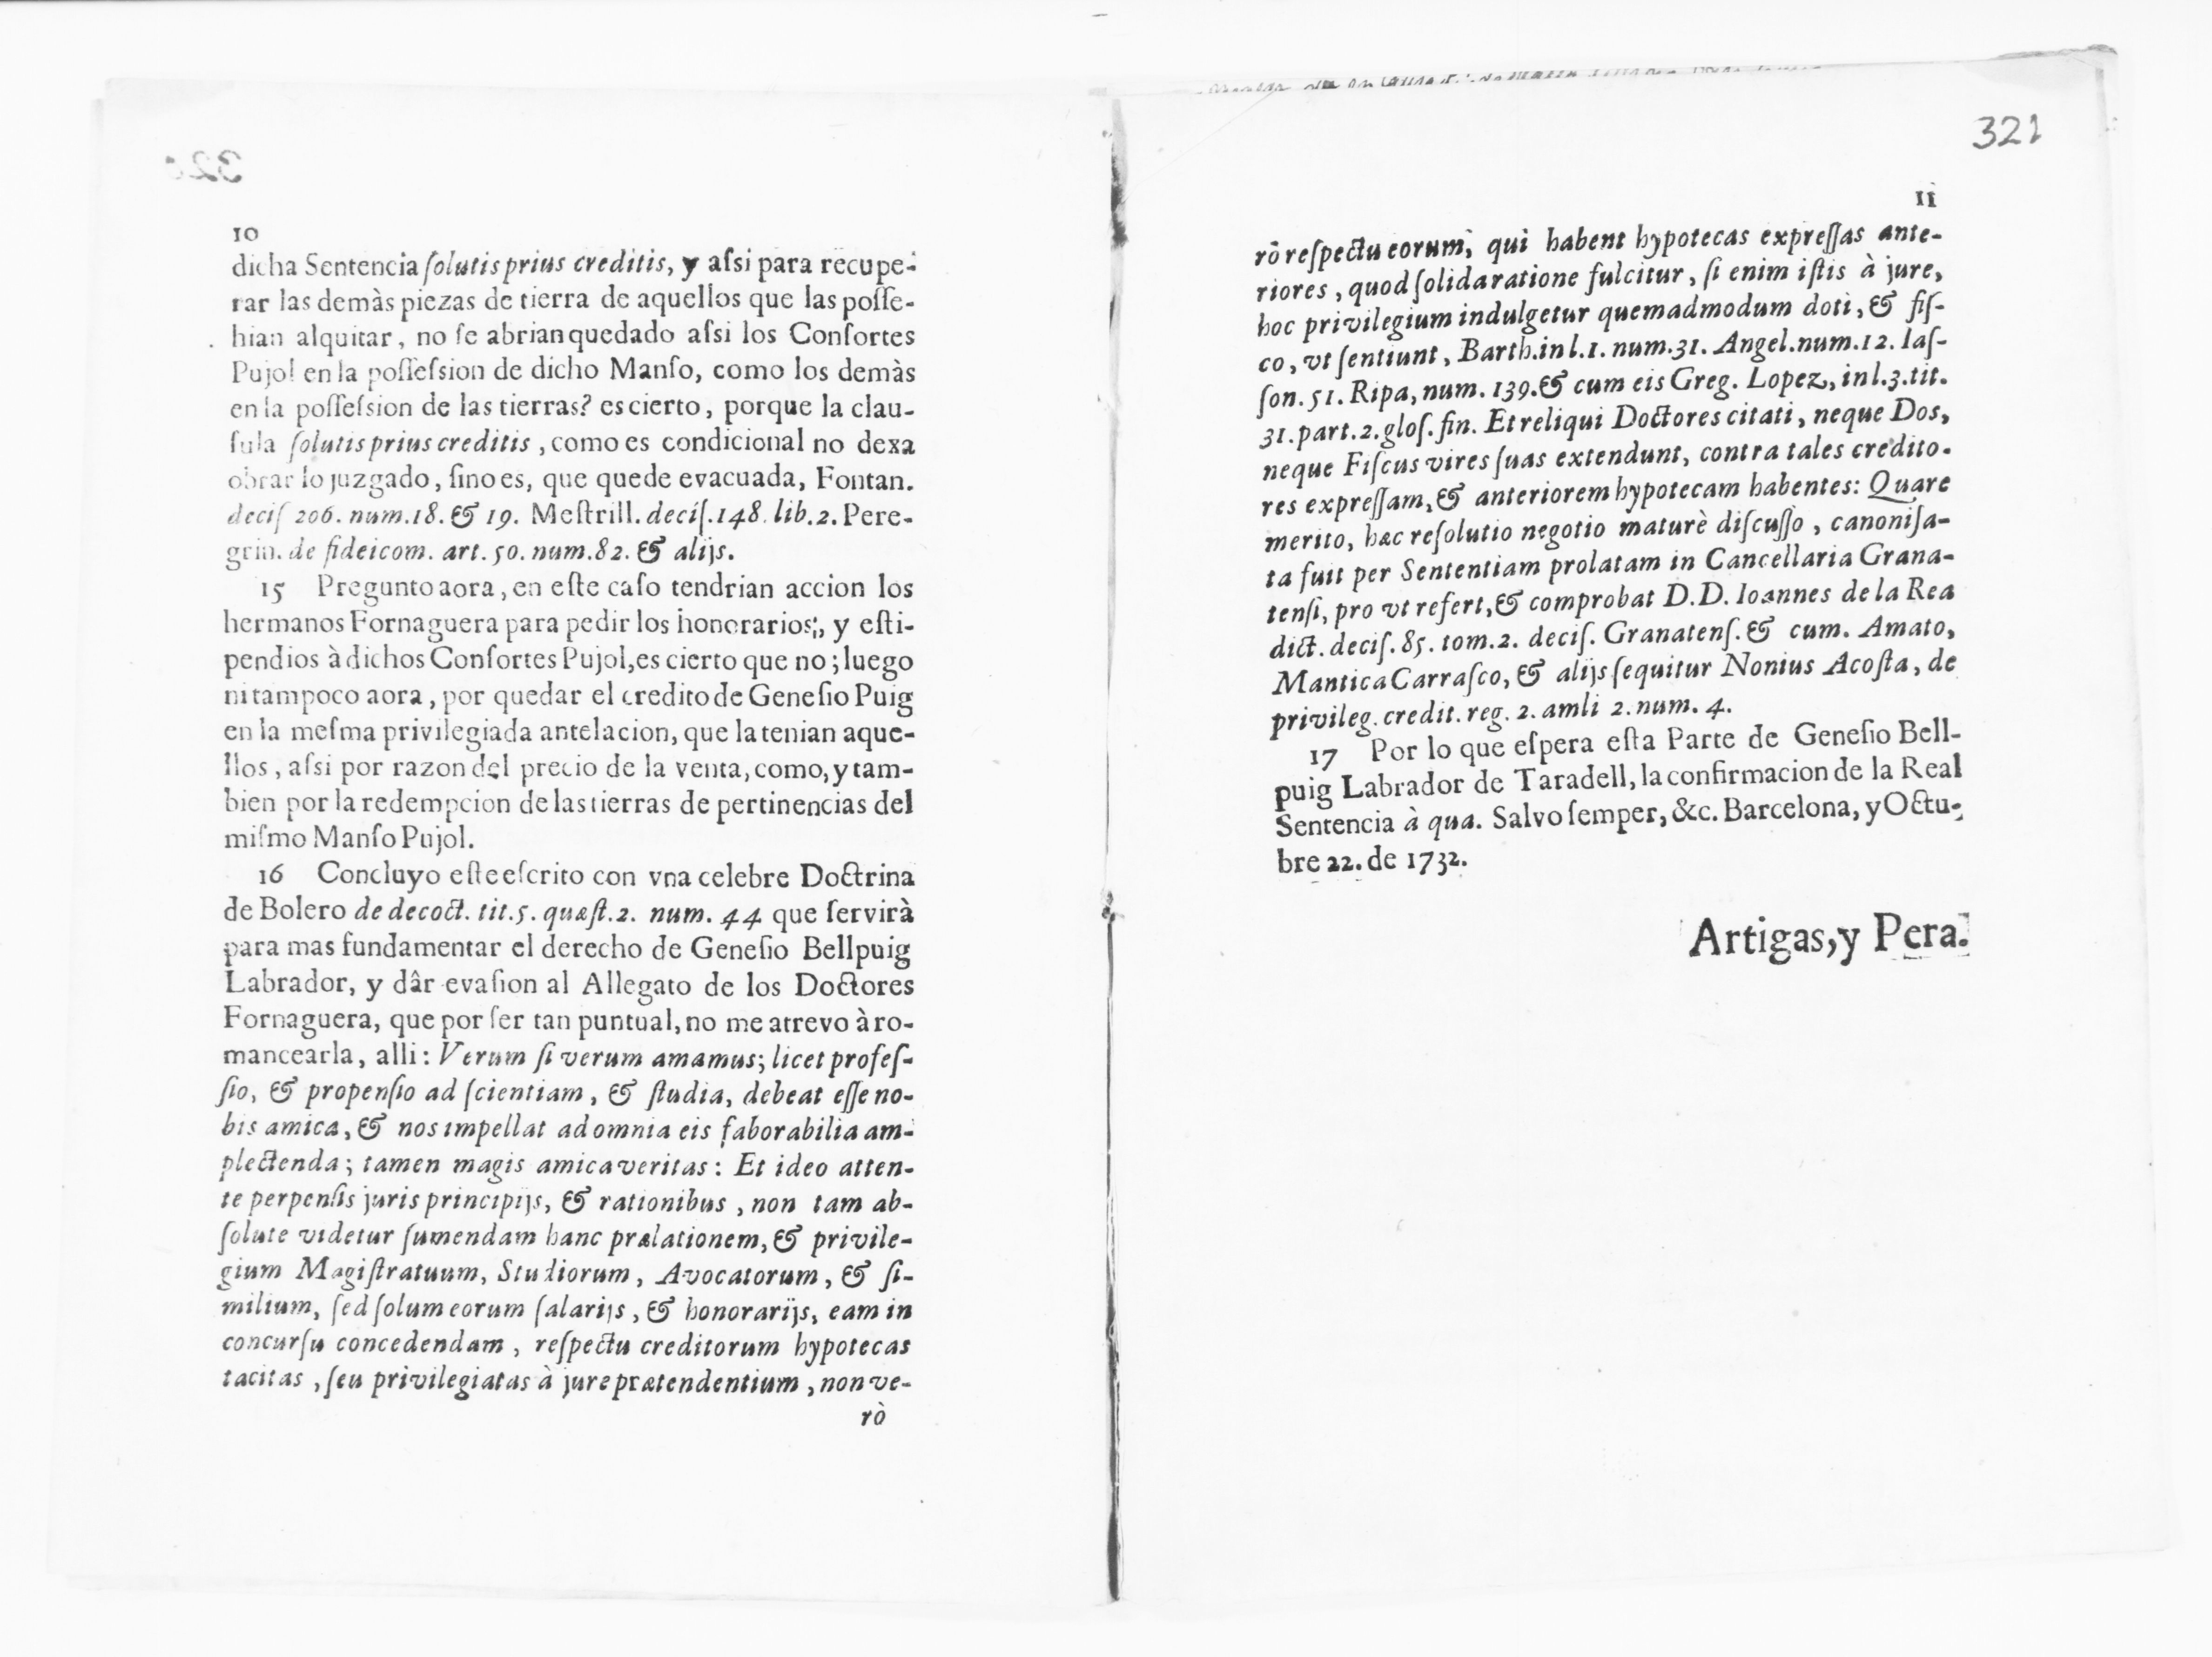 10
dicha Sentencia ſolutis prius creditis, y aſsi para recupe-
rar las demàs piezas de tierra de aquellos que las poſſe-
hian alquitar, no ſe abrian quedado aſsi los Conſortes
Pujol en la poſſeſsion de dicho Manſo, como los demàs
en la poſſeſsion de las tierras? es cierto, porque la clau-
ſula ſolutis prius creditis, como es condicional no dexa
obrar lo juzgado, ſino es, que quede evacuada, Fontan.
deciſ 206. num.18. & 19. Meſtrill. deciſ.148. lib.2. Pere-
grin. de fideicom. art. 50. num.82. & alijs.
15 Pregunto aora, en eſte caſo tendrian accion los
hermanos Fornaguera para pedir los honorarios;, y eſti-
pendios à dichos Conſortes Pujol, es cierto que no; luego
ni tampoco aora, por quedar el credito de Geneſio Puig
en la meſma privilegiada antelacion, que la tenian aque-
llos, aſsi por razon del precio de la venta, como, y tam-
bien por la redempcion de las tierras de pertinencias del
miſmo Manſo Pujol.
16 Concluyo eſte eſcrito con vna celebre Doctrina
de Bolero de decoct. tit.5. quæſt.2. num. 44 que ſervirà
para mas fundamentar el derecho de Geneſio Bellpuig
Labrador, y dâr evaſion al Allegato de los Doctores
Fornaguera, que por ſer tan puntual, no me atrevo à ro-
mancearla, alli: Verum ſi verum amamus; licet profeſ-
ſio, & propenſio ad ſcientiam, & ſtudia, debeat eſſe no-
bis amica, & nos impellat ad omnia eis faborabilia am-
plectenda; tamen magis amica veritas: Et ideo atten-
te perpenſis juris principijs, & rationibus, non tam ab-
ſolute videtur ſumendam hanc prælationem, & privile-
gium Magiſtratuum, Studiorum, Avocatorum, & ſi-
milium, ſed ſolum eorum ſalarijs, & honorarijs, eam in
concurſu concedendam, reſpectu creditorum hypotecas
tacitas, ſeu privilegiatas à jure prætendentium, non ve-
rò
321
11
rò reſpectu eorum, qui habent hypotecas expreſſas ante-
riores, quod ſolida ratione fulcitur, ſi enim iſtis à jure,
hoc privilegium indulgetur quemadmodum doti, & fiſ-
co, vt ſentiunt, Barth. in l.1. num.31. Angel. num.12. Iaſ-
ſon. 51. Ripa, num. 139. & cum eis Greg. Lopez, in l.3. tit.
31. part.2. gloſ. fin. Et reliqui Doctores citati, neque Dos,
neque Fiſcus vires ſuas extendunt, contra tales credito-
res expreſſam, & anteriorem hypotecam habentes: Quare
merito, hæc reſolutio negotio maturè diſcuſſò, canoniſa-
ta fuit per Sententiam prolatam in Cancellaria Grana-
tenſi, pro vt refert, & comprobat D.D. Ioannes de la Rea
dict. deciſ. 85. tom.2. deciſ. Granatenſ. & cum. Amato,
Mantica Carraſco, & alijs ſequitur Nonius Acoſta, de
privileg. credit. reg. 2. amli 2. num. 4.
17 Por lo que eſpera eſta Parte de Geneſio Bell-
puig Labrador de Taradell, la confirmacion de la Real
Sentencia à qua. Salvo ſemper, &c. Barcelona, y Octu-
bre 22. de 1732.
Artigas, y Pera.